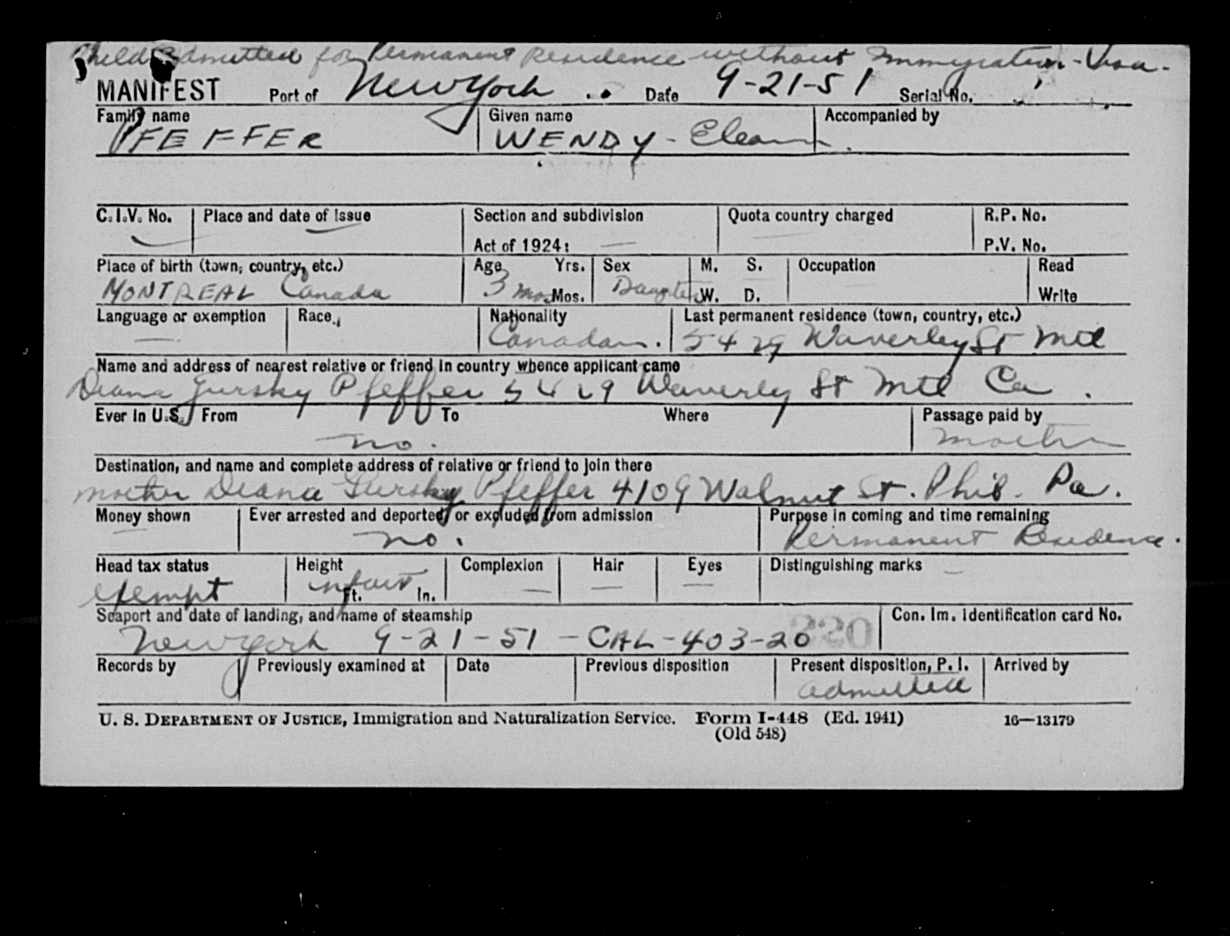 Child Admitted for Permanent Residence without Immigration-Visa.
MANIFEST Port of New York .. Date 9-21-51 Serial No.
Family name Given name Accompanied by
PFEFFER WENDY-
C.I.V. No. Place and date of issue Section and subdivision Quota country charged R.P. No.
Act of 1924: — P.V. No.
Place of birth (town, country, etc.) Age Yrs. Sex M. S. Occupation Read
MONTREAL Canada 3 mos Mos. Daughter W. D. Write
Language or exemption Race Nationality Last permanent residence (town, country, etc.)
— Canadian. 5429 Waverley St Mtl
Name and address of nearest relative or friend in country whence applicant came
Diana Gursky Pfeffer 5429 Waverly St Mtl Ca.
Ever in U.S. From To Where Passage paid by
no. mother
Destination, and name and complete address of relative or friend to join there
mother Diana Gursky Pfeffer 4109 Walnut St. Phil. Pa.
Money shown Ever arrested and deported, or excluded from admission Purpose in coming and time remaining
— no. Permanent Residence.
Head tax status Height Complexion Hair Eyes Distinguishing marks —
exempt infant Ft. In. — — —
Seaport and date of landing, and name of steamship Con. Im. Identification card No.
New York 9-21-51-CAL-403-20 320
Records by Previously examined at Date Previous disposition Present disposition, P. I. Arrived by
admitted
U. S. DEPARTMENT OF JUSTICE, Immigration and Naturalization Service. Form I-448 (Ed. 1941) 16—13179
(Old 548)